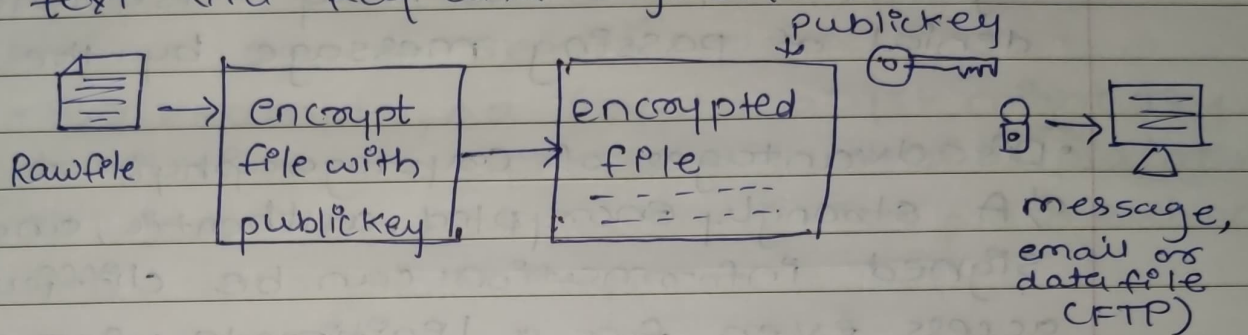 publickey
Rawfile
encrypt
file with
publickey
encrypted
file
message,
email or
data file
(FTP)